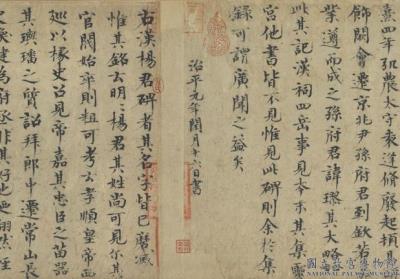 熹四年弘農太守袁逢脩廢起頓
飾闕會遷京兆尹孫府君到欽若
業遵而成之孫府君諱璆其大略
此其記漢祠四岳事見本末其集靈
宮他書皆不見惟見此碑則余於集
錄可謂廣聞之益矣
治平元年閏月十六日書
右漢楊君碑者其名字皆已磨滅
惟其銘云明明楊君其姓尚可見尔其
官閥始卒則粗可考云孝順皇帝西
巡以掾史召見帝嘉其忠臣之苗器
其璵璠之質詔拜郎中遷常山長
換犍為府丞非其好也翻然
國立故宮博物院
NATIONAL PALACE MUSEUM